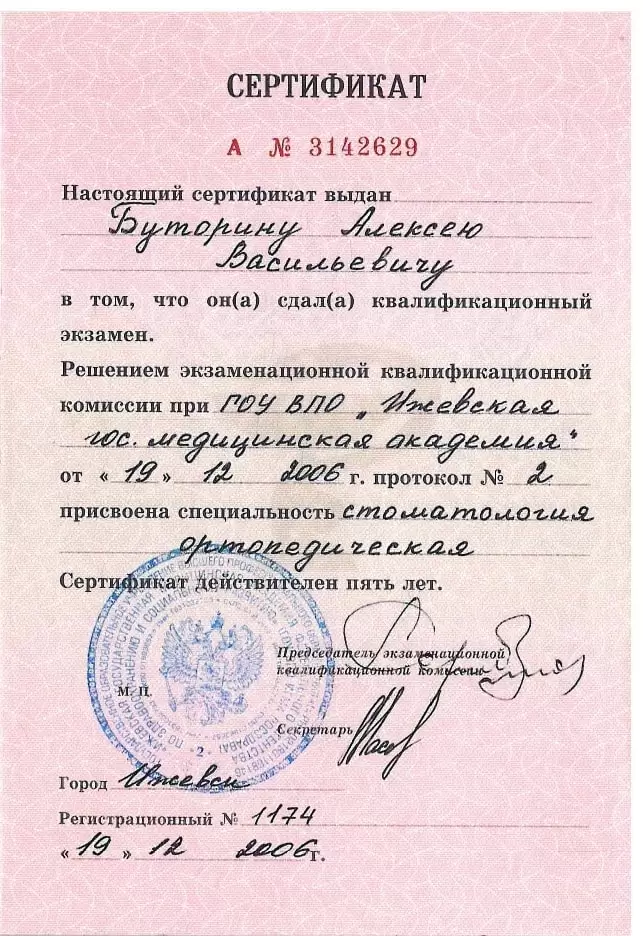 СЕРТИФИКАТ
А № 3142629
Настоящий сертификат выдан
Буторину Алексею
Васильевичу
в том, что он(а) сдал(а) квалификационный
экзамен.
Решением экзаменационной квалификационной
комиссии при ГОУ ВПО „Ижевская
гос. медицинская академия"
от « 19 » 12 2006 г. протокол № 2
присвоена специальность стоматология
ортопедическая
Сертификат действителен пять лет.
Председатель экзаменационной
квалификационной комиссии
М. П.
Секретарь
Город Ижевск
Регистрационный № 1174
« 19 » 12 2006 г.